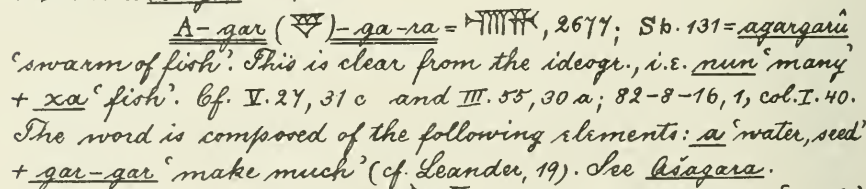 A-gar ( )-ga-ra = , 2677; Sb. 131 = agargarû
‘swarm of fish’. This is clear from the ideogr., i.e. nun ‘many’
+ xa ‘fish’. Cf. V. 27, 31 c and III. 55, 30 a; 82-8-16, 1, col. I. 40.
The word is composed of the following elements: a ‘water, seed’
+ gar-gar ‘make much’ (cf. Leander, 19). See Ašagara.